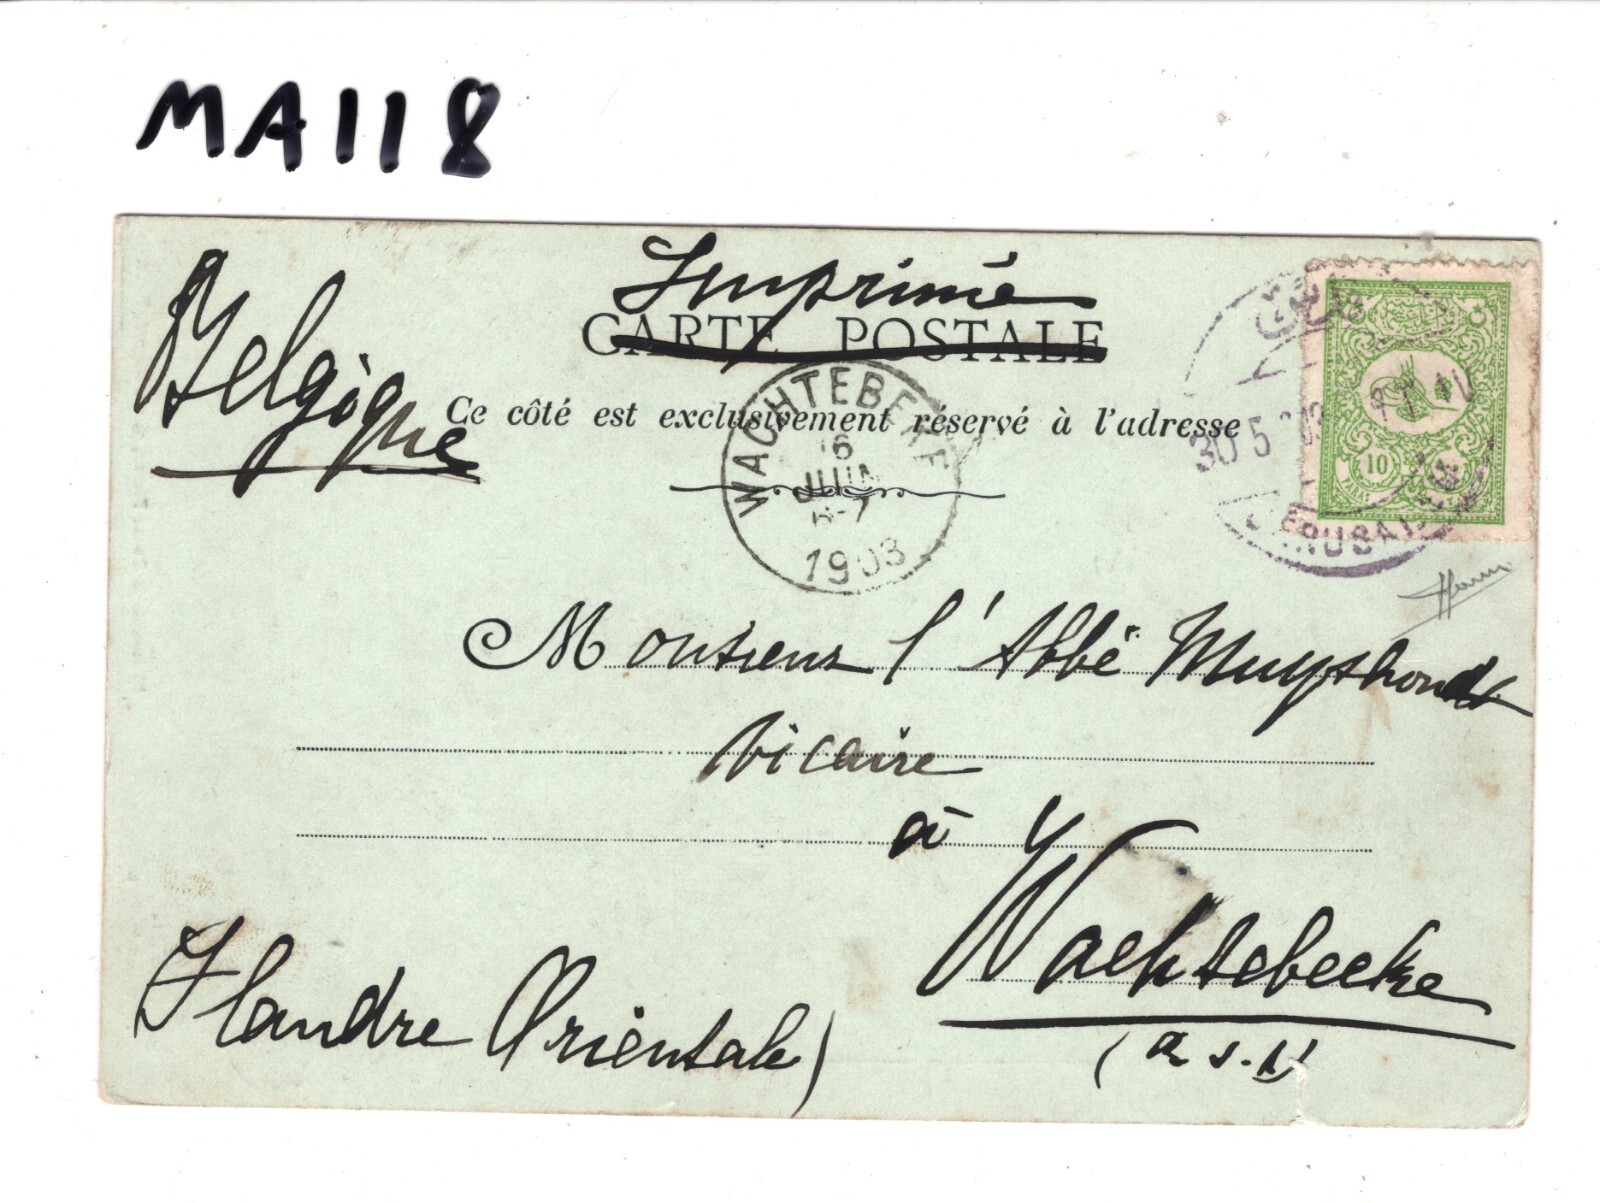 MA118
Imprimé
Belgique
CARTE POSTALE
Ce côté est exclusivement réservé à l'adresse
WACHTEBEKE
6
JUIN
6-7
1903
30 5
JERUSALEM
10
PARAS
Monsieur l'Abbé Muyshondt
vicaire
à
Wachtebecke
Flandre Orientale)